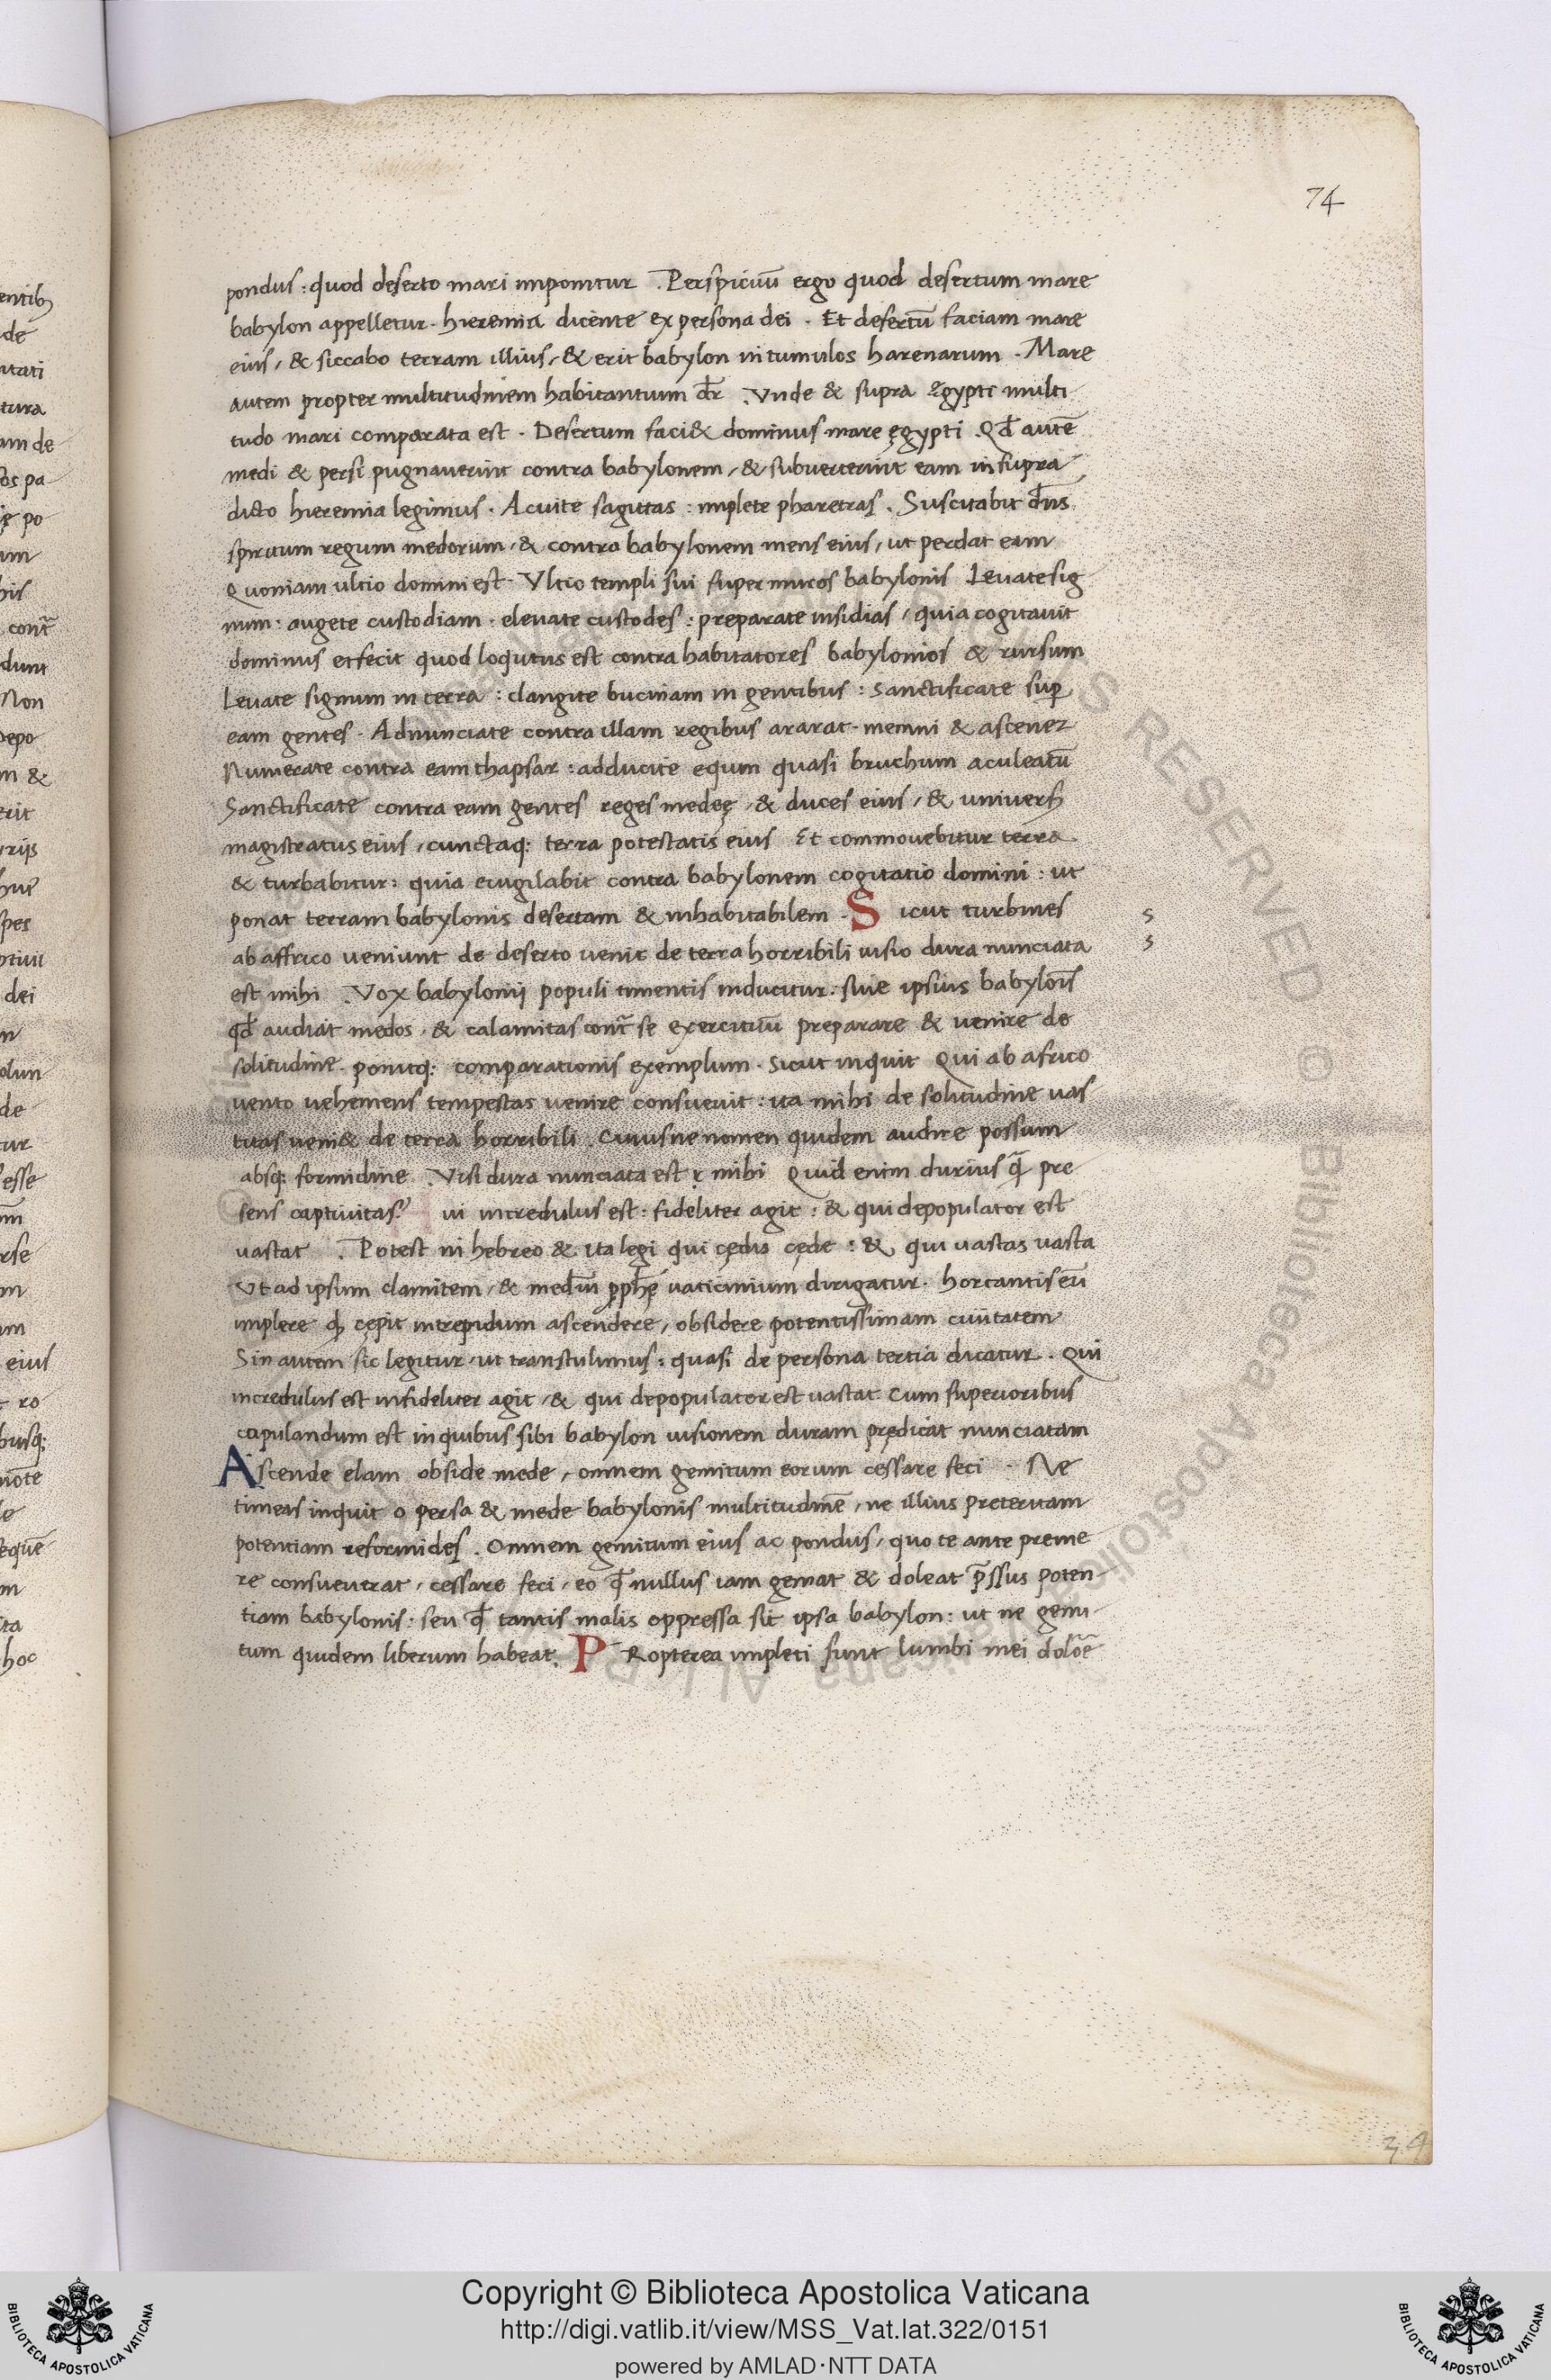 74
pondus : quod deserto mari imponitur . Perspicuū ergo quod desertum mare
babylon appelletur . hieremia dicente ex persona dei . Et desertū faciam mare
eius , & siccabo terram illius , & erit babylon in tumulos harenarum . Mare
autem propter multitudinem habitantium dr̄ . Vnde & supra ęgypti multi
tudo mari comparata est . Desertum faci& dominus mare ęgypti . Qd̄ autē
medi & persi pugnaverint contra babylonem , & subverterint eam in supra
dicto hieremia legimus . Acuite sagittas : implete pharetras . Suscitabit dn̄s
spiritum regum medorum , & contra babylonem mens eius , ut perdat eam
Quoniam ultio domini est . Vltio templi sui super muros babylonis Levate sig
num : augete custodiam . elevate custodes : preparate insidias , quia cogitavit
dominus et fecit quod loqutus est contra habitatores babylonios & rursum
Levate signum in terra : clangite bucinam in gentibus : sanctificate sup̄
eam gentes . Adnunciate contra illam regibus ararat . menni & ascenez
Numerate contra eam thapsar : adducite equm quasi bruchum aculeatū
Sanctificate contra eam gentes reges medeę , & duces eius , & universi
magistratus eius , cunctaq; terra potestatis eius Et commovebitur terra
& turbabitur : quia evigilabit contra babylonem cogitatio domini : ut
ponat terram babylonis desertam & inhabitabilem . S icut turbines
ab affrico veniunt de deserto venit de terra horribili visio dura nunciata
est mihi . Vox babylonij populi timentis inducitur . sive ipsius babylōīs
qd̄ audiat medos , & calamitas cont̄ se exercitiū preparare & venire de
solitudine . ponitq; comparationis exemplum . sicut inquit Qui ab africo
vento vehemens tempestas venire consuevit : ita mihi de solitudine vas
titas veni& de terra horribili . cuius ne nomen quidem audire possum
absq; formidine . Visi dura nunciata est mihi Quid enim durius q̄ pre
sens captivitas? ui incredulus est : fideliter agit : & qui depopulator est
vastat . Potest in hebreo & ita legi qui cędis cęde : & qui vastas vasta
Vt ad ipsum clamitem , & med̄iū pph̄ę vaticinium dirigatur . hortantis eū
implere q cępit intrepidum ascendere , obsidere potentissimam civitatem
Sin autem sic legitur , ut transtulimus : quasi de persona tertia dicatur . Qui
incredulus est infideliter agit , & qui depopulator est vastat cum superioribus
capulandum est in quibus sibi babylon visionem duram prędicat nunciatam
Ascende elam obside mede , omnem gemitum eorum cessare feci . Ne
timeas inquit o persa & mede babylonis multitudinē , ne illius pretervam
potentiam reformides . Omnem gemitum eius ac pondus , quo te ante preme
re consueverat , cessare feci , eo q̄ nullus iam gemat & doleat p̄ssus poten
tiam babylonis : seu q̄ tantis malis oppressa sit ipsa babylon : ut ne gemi
tum quidem liberum habeat . P Ropterea impleti sunt lumbi mei dolōē
Copyright © Biblioteca Apostolica Vaticana
http://digi.vatlib.it/view/MSS_Vat.lat.322/0151
powered by AMLAD·NTT DATA
BIBLIOTECA APOSTOLICA VATICANA
BIBLIOTECA APOSTOLICA VATICANA